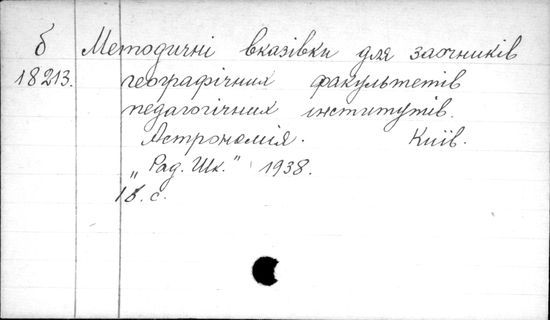 б Методичні вказівки для заочників
18213. географічних факультетів
педагогічних інститутів.
Астрономія. Київ.
„Рад. Шк." 1938.
16. с.